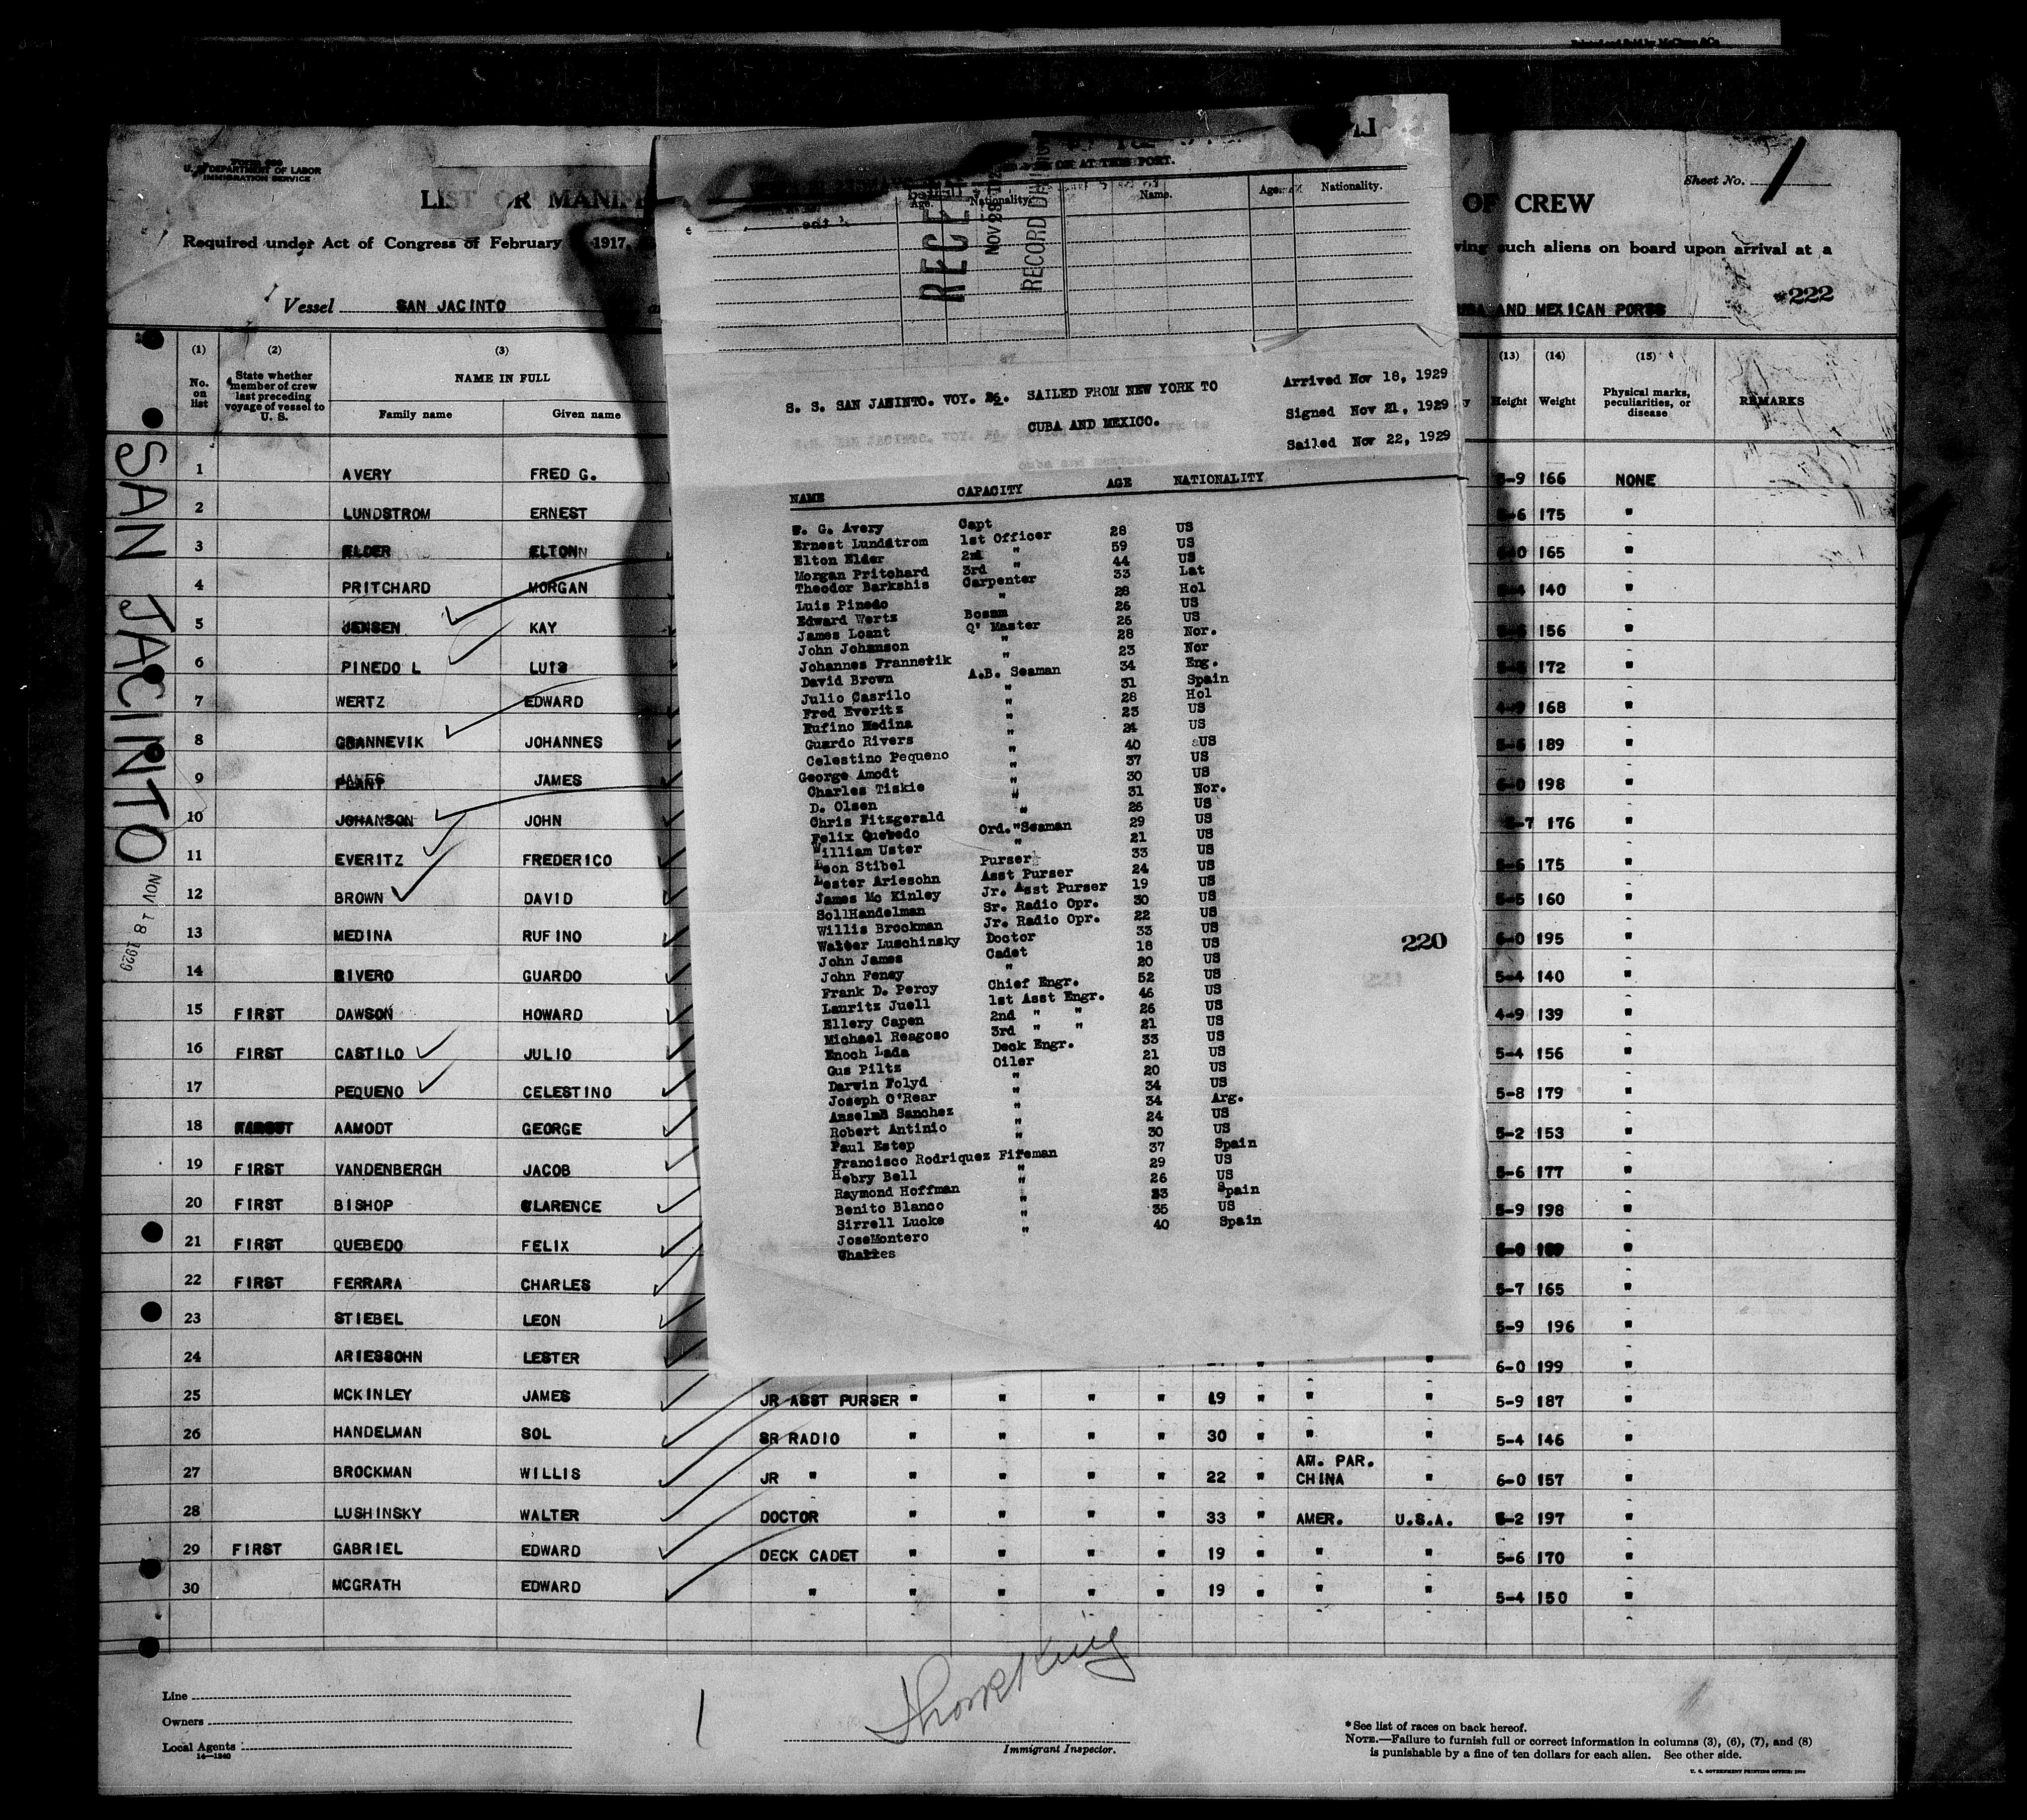 Form 680
U. S. DEPARTMENT OF LABOR
IMMIGRATION SERVICE
LIST OR MANIFE
OF CREW
Sheet No. 1
Required under Act of Congress of February 1917,
ving such aliens on board upon arrival at a
Vessel SAN JACINTO
AND MEXICAN PORTS
222
(1) (2) (3) (13) (14) (15)
No. on list
State whether member of crew last preceding voyage of vessel to U. S.
NAME IN FULL
Family name Given name
Height Weight
Physical marks, peculiarities, or disease
REMARKS
SAN JACINTO
NOV 18 1929
1 AVERY FRED G. 5-9 166 NONE
2 LUNDSTROM ERNEST 5-6 175 "
3 ELDER ELTON 165 "
4 PRITCHARD MORGAN 140 "
5 JENSEN KAY 156 "
6 PINEDO L LUIS 172 "
7 WERTZ EDWARD 168 "
8 GRANNEVIK JOHANNES 189 "
9 JAMES 6-0 198 "
10 JOHANSON JOHN 176 "
11 EVERITZ FREDERICO 5-6 175 "
12 BROWN DAVID 5-5 160 "
13 MEDINA RUFINO 6-0 195 "
14 RIVERO GUARDO 5-4 140 "
15 FIRST DAWSON HOWARD 4-9 139 "
16 FIRST CASTILO JULIO 5-4 156 "
17 PEQUENO CELESTINO 5-8 179 "
18 AAMODT GEORGE 5-2 153 "
19 FIRST VANDENBERGH JACOB 5-6 177 "
20 FIRST BISHOP CLARENCE 5-9 198 "
21 FIRST QUEBEDO FELIX "
22 FIRST FERRARA CHARLES 5-7 165 "
23 STIEBEL LEON 5-9 196 "
24 ARIESSOHN LESTER 6-0 199 "
25 MCKINLEY JAMES JR ASST PURSER " " " " 19 " " " 5-9 187 "
26 HANDELMAN SOL SR RADIO " " " " 30 " " " 5-4 146 "
27 BROCKMAN WILLIS JR " " " " " 22 " AM. PAR. CHINA " 6-0 157 "
28 LUSHINSKY WALTER DOCTOR " " " " 33 " AMER. U.S.A. 197 "
29 FIRST GABRIEL EDWARD DECK CADET " " " " 19 " " " 5-6 170 "
30 MCGRATH EDWARD " " " " " 19 " " " 5-4 150 "
ON OR AT THIS PORT.
Age. Nationality. Name. Age. Nationality.
NOV 29
S. S. SAN JACINTO. VOY. 26. SAILED FROM NEW YORK TO
CUBA AND MEXICO.
Arrived Nov 18, 1929
Signed Nov 21, 1929
Sailed Nov 22, 1929
NAME CAPACITY AGE NATIONALITY
F. G. Avery Capt 28 US
Ernest Lundstrom 1st Officer 59 US
Elton Elder 2nd " 44 US
Morgan Pritchard 3rd " 33 Lat
Theodor Barkshis Carpenter 28 Hol
Luis Pinedo " 26 US
Edward Wertz Bosmm 26 US
James Loant Q' Master 28 Nor.
John Johanson " 23 Nor
Johannes Frannetik " 34 Eng.
David Brown A.B. Seaman 31 Spain
Julio Casrilo " 28 Hol
Fred Everitz " 23 US
Rufino Medina " 24 US
Guardo Rivers " 40 US
Celestino Pequeno " 37 US
George Amodt " 30 US
Charles Tiskie " 31 Nor.
D. Olsen " 26 US
Chris Fitzgerald " 29 US
Felix Quebedo Ord. "Seaman 21 US
William Uster " 33 US
Leon Stibel Purser 24 US
Lester Ariesohn Asst Purser 19 US
James Mc Kinley Jr. Asst Purser 30 US
SollHandelman Sr. Radio Opr. 22 US
Willis Brockman Jr. Radio Opr. 33 US
Walter Luschinsky Doctor 18 US
John James Cadet 20 US
John Feney " 52 US
Frank D. Percy Chief Engr. 46 US
Lauritz Juell 1st Asst Engr. 26 US
Ellery Capen 2nd " " 21 US
Michael Reagoso 3rd " " 33 US
Enoch Lada Deck Engr. 21 US
Gus Piltz Oiler 20 US
Darwin Folyd " 34 US
Joseph O'Rear " 34 Arg.
Anselmo Sanchez " 24 US
Robert Antinio " 30 US
Paul Estep " 37 Spain
Francisco Rodriquez Fireman 29 US
Hebry Bell " 26 US
Raymond Hoffman " 23 Spain
Benito Blanco " 35 US
Sirrell Lucke " 40 Spain
JoseMontero "
Charles
220
Line
Owners
Local Agents
14—1240
Immigrant Inspector.
* See list of races on back hereof.
NOTE.—Failure to furnish full or correct information in columns (3), (6), (7), and (8)
is punishable by a fine of ten dollars for each alien. See other side.
U. S. GOVERNMENT PRINTING OFFICE: 1929